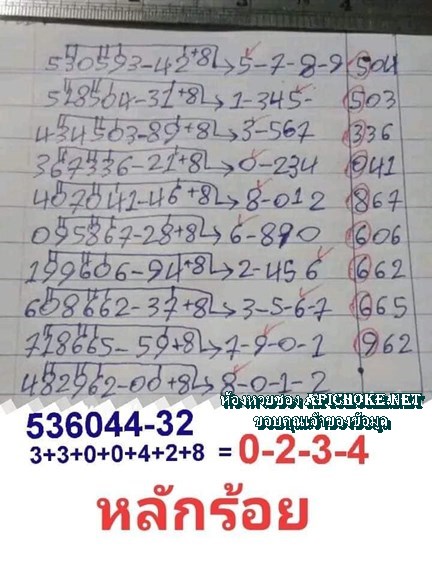 530593-42+8→5-7-8-9 504
528504-31+8→1-345- 503
434503-89+8→3-567 336
367336-21+8→0-234 041
407041-46+8→8-012 867
095867-28+8→6-890 606
199606-94+8→2-456 662
608662-37+8→3-5-6-7 665
728665-59+8→7-9-0-1 962
482962-00+8→8-0-1-2
ห้องหวยซอง APICHOKE.NET
ขอบคุณเจ้าของข้อมูล
536044-32
3+3+0+0+4+2+8 =0-2-3-4
หลักร้อย